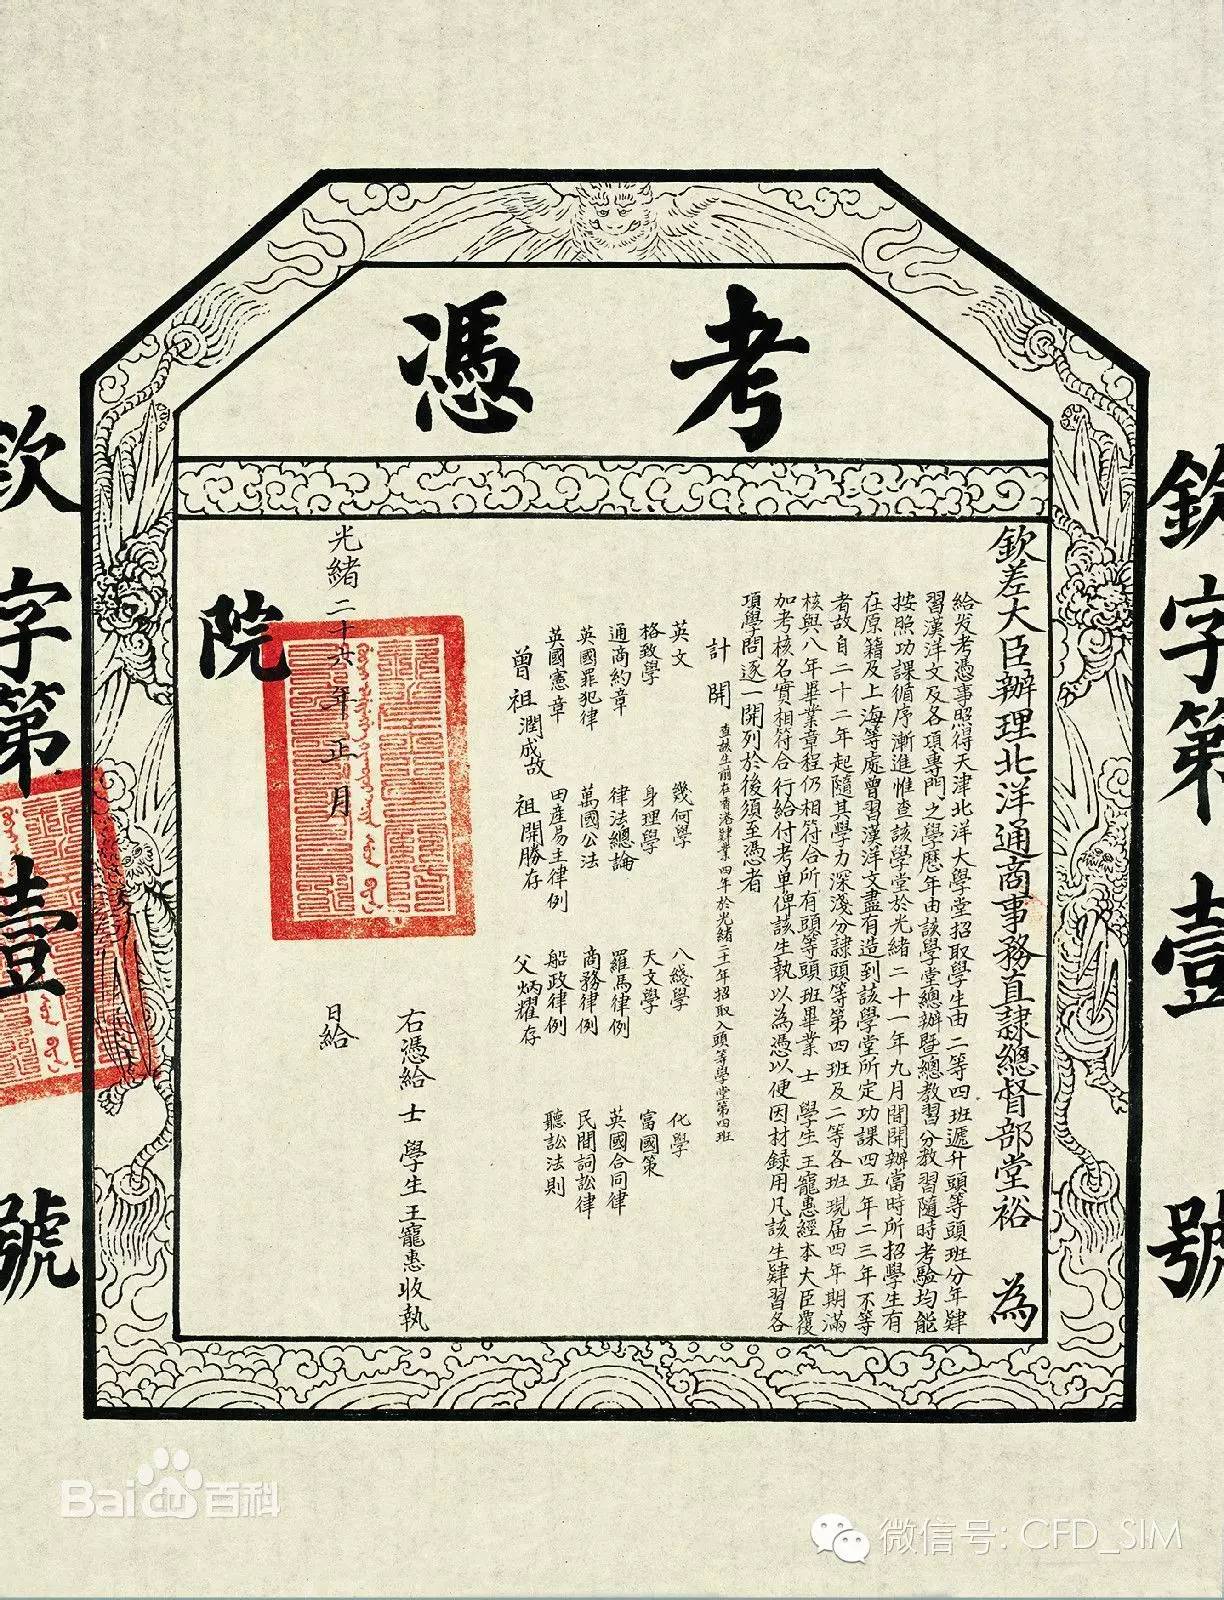 考憑
欽字第壹號
欽差大臣辦理北洋通商事務直隸總督部堂裕 為
給发考憑事照得天津北洋大學堂招取學生由二等四班遞升頭等頭班分年肄
習漢洋文及各項專門之學歷年由該學堂總辦暨總教習分教習隨時考驗均能
按照功課循序漸進惟查該學堂於光緒二十一年九月間開辦當時所招學生有
在原籍及上海等處曾習漢洋文盡有造到該學堂所定功課四五年二三年不等
者故自二十二年起隨其學力深淺分隸頭等第四班及二等各班現届四年期滿
核與八年畢業章程仍相符合所有頭等頭班畢業士 學生王寵惠經本大臣覆
加考核名實相符合行給付考單俾該生執以為憑以便因材録用凡該生肄習各
項學問逐一開列於後須至憑者
計開 查該生前在香港肄業四年於光緒二十一年招取入頭等學堂第四班
英文 幾何學 八綫學 化學
格致學 身理學 天文學 富國策
通商約章 律法總論 羅馬律例 英國合同律
英國罪犯律 萬國公法 商務律例 民間詞訟律
英國憲章 田產易主律例 船政律例 聽訟法則
曾祖潤成故 祖開勝存 父炳耀存
右憑給 士 學生王寵惠收執
光緒二十六年正月 日給
院
欽字第壹號
Bai百科
微信号: CFD_SIM